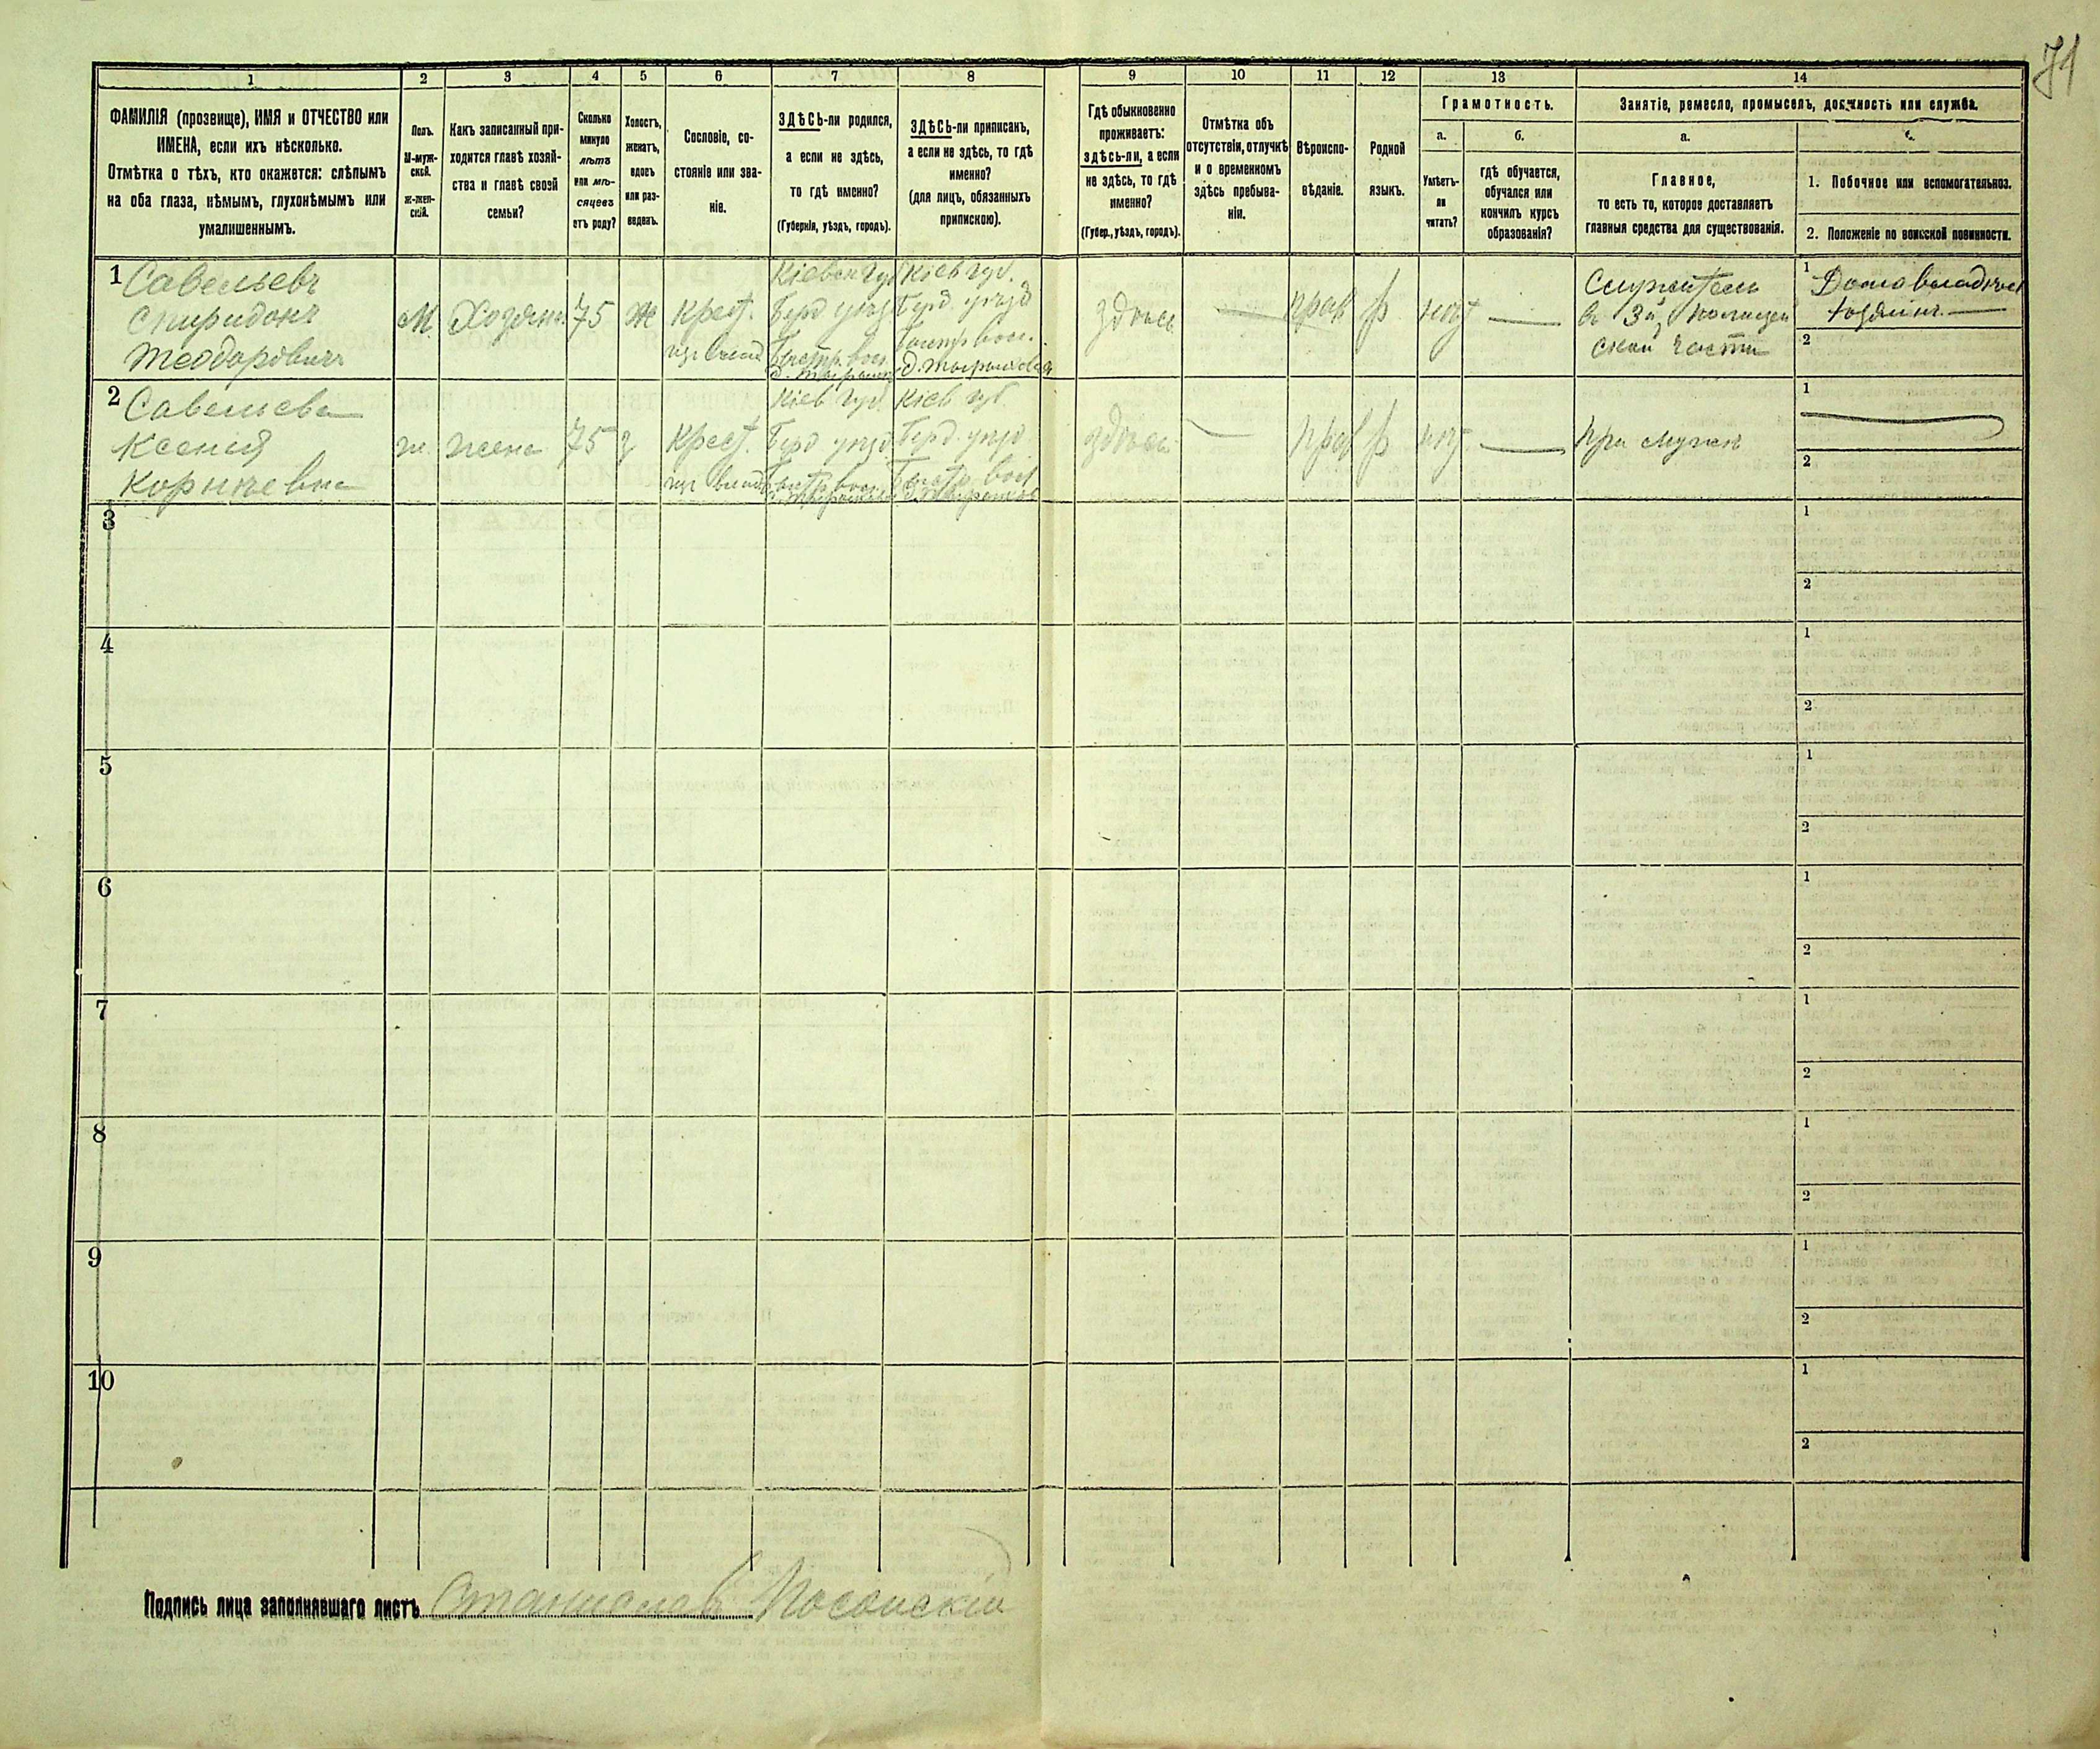 71
1 2 3 4 5 6 7 8 9 10 11 12 13 14
ФАМИЛІЯ (прозвище), ИМЯ и ОТЧЕСТВО или
ИМЕНА, если ихъ нѣсколько.
Отмѣтка о тѣхъ, кто окажется: слѣпымъ
на оба глаза, нѣмымъ, глухонѣмымъ или
умалишеннымъ.
Полъ.
М-муж-
ской.
Ж-жен-
скій.
Какъ записанный при-
ходится главѣ хозяй-
ства и главѣ своей
семьи?
Сколько
минуло
лѣтъ
или мѣ-
сяцевъ
отъ роду?
Холостъ,
женатъ,
вдовъ
или раз-
веденъ.
Сословіе, со-
стояніе или зва-
ніе.
ЗДѢСЬ-ли родился,
а если не здѣсь,
то гдѣ именно?
(Губернія, уѣздъ, городъ).
ЗДѢСЬ-ли приписанъ,
а если не здѣсь, то гдѣ
именно?
(для лицъ, обязанныхъ
припискою).
Гдѣ обыкновенно
проживаетъ:
здѣсь-ли, а если
не здѣсь, то гдѣ
именно?
(Губер., уѣздъ, городъ).
Отмѣтка объ
отсутствіи, отлучкѣ
и о временномъ
здѣсь пребыва-
ніи.
Вѣроиспо-
вѣданіе.
Родной
языкъ.
Грамотность.
а.
Умѣетъ-
ли
читать?
б.
гдѣ обучается,
обучался или
кончилъ курсъ
образованія?
Занятіе, ремесло, промыселъ, должность или служба.
а.
Главное,
то есть то, которое доставляетъ
главныя средства для существованія.
1. Побочное или вспомогательное.
2. Положеніе по воинской повинности.
1
Савельевъ
Спиридонъ
Теодоровичъ
М
Хозяинъ
75
Ж
Крест.
Кіевск Губ
Берд уѣзд
Кіев губ.
Берд. уѣзд
здѣсь
прав
р
нѣт
Служитель
в 3й Полицей
ской части
1
хозяинъ
2
2
Савельева
Ксенія
Корнѣевна
ж.
жена
75
з
Крест.
Кіев Губ.
Берд уѣзд
Кіев губ
Берд. уѣзд
здѣсь
прав
р
нѣт
при мужѣ
1
2
3
1
2
4
1
2
5
1
2
6
1
2
7
1
2
8
1
2
9
1
2
10
1
2
Подпись лица заполнявшаго листъ Станислав